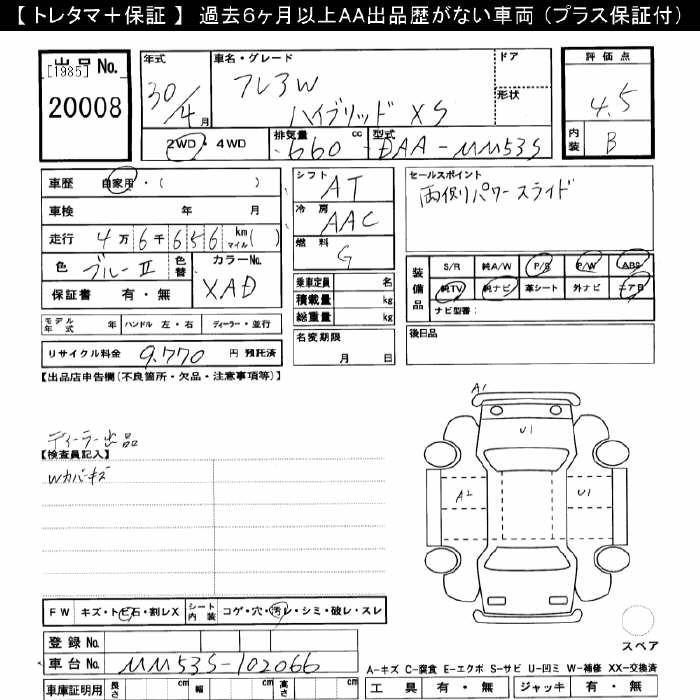 【 トレタマ＋保証 】 過去6ヶ月以上AA出品歴がない車両 (プラス保証付)
出品No.
[1985]
20008
年式
30/4 月
車名・グレード
フレアW
ハイブリッド XS
ドア
形状
評価点
4.5
内装
B
2WD・4WD
排気量 cc
660
型式
DAA-MM53S
車歴 自家用・( )
車検 年 月
走行 4万6千656 km マイル( )
色 ブルーⅡ 色替
カラーNo.
XAD
保証書 有・無
シフト
AT
冷房
AAC
燃料
G
乗車定員 名
積載量 kg
総重量 kg
セールスポイント
両側パワースライド
装備品
S/R 純A/W P/S P/W ABS
純TV 純ナビ 革シート 外ナビ エアB
ナビ型番：
モデル年式 年 ハンドル 左・右 ディーラー・並行
リサイクル料金 9,770 円 預託済
名変期限
月 日
後日品
【出品店申告欄(不良箇所・欠品・注意事項等)】
ディーラー出品
【検査員記入】
Wカバーキズ
A1
U1
A2
U1
FW キズ・トビ石・割レX シート内装 コゲ・穴・汚レ・シミ・破レ・スレ
登録No.
車台No. MM53S-102066
車庫証明用 長さ cm 幅 cm 高さ cm
スペア
A-キズ C-腐食 E-エクボ S-サビ U-凹ミ W-補修 XX-交換済
工具 有・無 ジャッキ 有・無